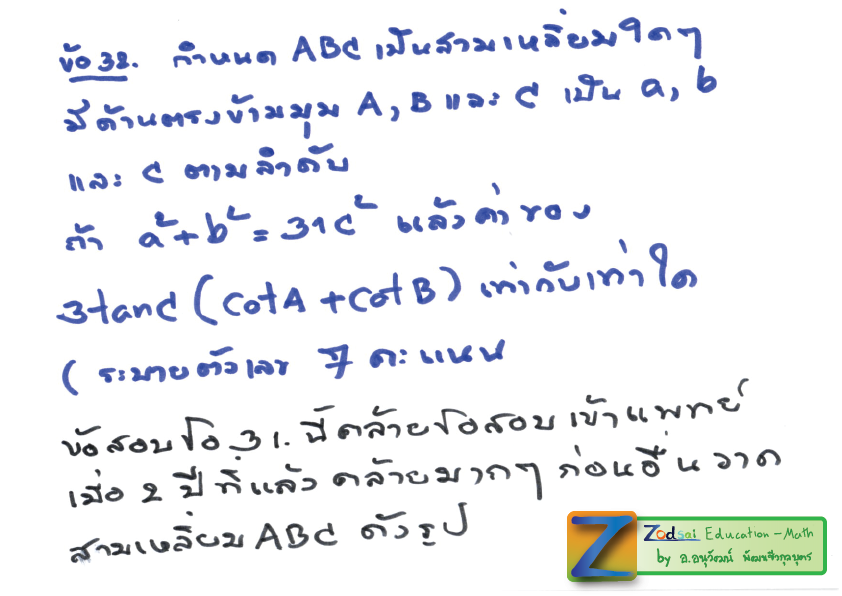 ข้อ 32. กำหนด ABC เป็นสามเหลี่ยมใดๆ
มีด้านตรงข้ามมุม A, B และ C เป็น a, b
และ C ตามลำดับ
ถ้า a²+b² = 31c² แล้วค่าของ
3tanC (cotA + cotB) เท่ากับเท่าใด
( ระบายตัวเลข 7 คะแนน
ข้อสอบข้อ 31. นี้คล้ายข้อสอบเข้าแพทย์
เมื่อ 2 ปีที่แล้ว คล้ายมากๆ ก่อนอื่นวาด
สามเหลี่ยม ABC ดังรูป
Z Zodsai Education - Math
by อ.อนุวัฒน์ พัฒนชีวกุลบุตร